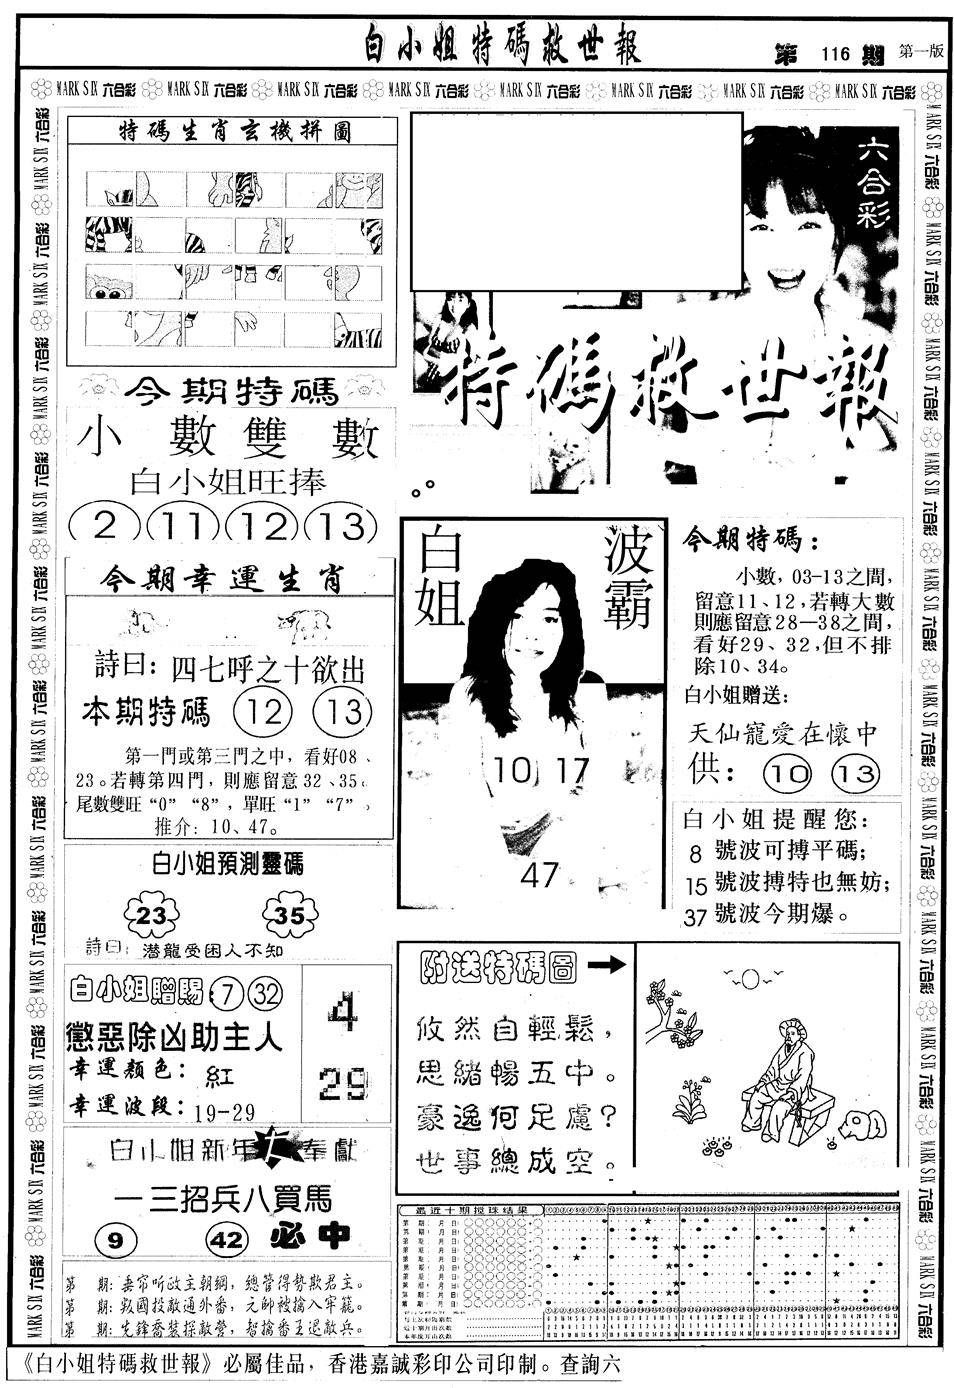 白小姐特碼救世報
第 116 期 第一版
MARK SIX 六合彩 MARK SIX 六合彩 MARK SIX 六合彩 MARK SIX 六合彩 MARK SIX 六合彩 MARK SIX 六合彩 MARK SIX 六合彩 MARK SIX 六合彩
特碼生肖玄機拼圖
六合彩
特碼救世報
今期特碼
小數雙數
白小姐旺捧
2 11 12 13
今期幸運生肖
詩曰: 四七呼之十欲出
本期特碼 12 13
第一門或第三門之中, 看好08、
23。若轉第四門, 則應留意32、35。
尾數雙旺“0”“8”, 單旺“1”“7”。
推介: 10、47。
白小姐預測靈碼
23 35
詩曰: 潜龍受困人不知
白小姐贈賜: 7 32
懲惡除凶助主人
幸運顏色: 紅
幸運波段: 19-29
4
29
白小姐新年大奉獻
一三招兵八買馬
9 42 必中
第 期: 垂帘听政主朝綱, 總管得勢欺君主。
第 期: 叛國投敵通外番, 元帥被擒入牢籠。
第 期: 先鋒喬裝探敵營, 智擒番王退敵兵。
白姐
波霸
10 17
47
今期特碼:
小數, 03-13之間,
留意11、12, 若轉大數
則應留意28—38之間,
看好29、32, 但不排
除10、34。
白小姐贈送:
天仙寵愛在懷中
供: 10 13
白小姐提醒您:
8 號波可搏平碼;
15 號波搏特也無妨;
37 號波今期爆。
附送特碼圖
攸然自輕鬆,
思緒暢五中。
豪逸何足慮?
世事總成空。
最近十期搅珠结果
《白小姐特碼救世報》必屬佳品, 香港嘉誠彩印公司印制。查詢六